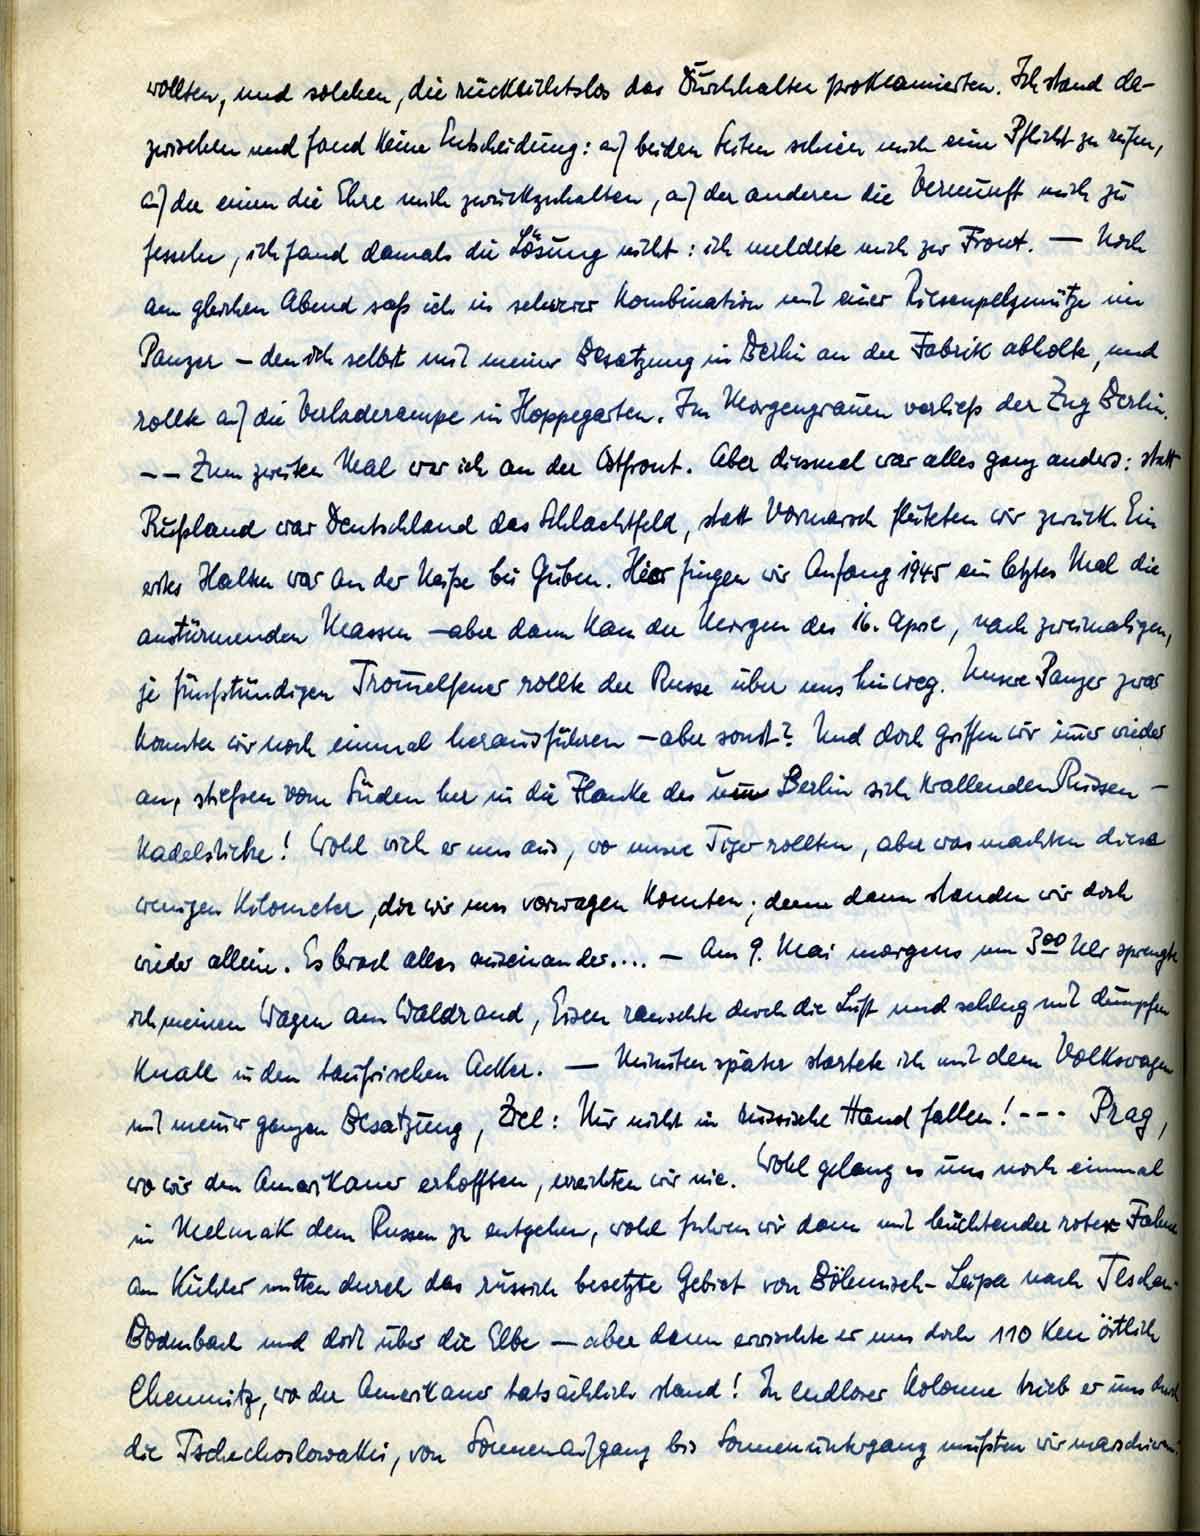 wollten, und solchen, die rücksichtslos das Durchhalten proklamierten. Ich stand da-
zwischen und fand keine Entscheidung: auf beiden Seiten schien mich eine Pflicht zu rufen,
auf der einen die Ehre mich zurückzuhalten, auf der anderen die Vernunft mich zu
fesseln, ich fand damals die Lösung nicht: ich meldete mich zur Front. — Noch
am gleichen Abend saß ich in schwarzer Kombination mit einer Riesenpelzmütze im
Panzer – den ich selbst mit meiner Besatzung in Berlin an der Fabrik abholte, und
rollte auf die Verladerampe in Hoppegarten. Im Morgengrauen verließ der Zug Berlin.
-- Zum zweiten Mal war ich an der Ostfront. Aber diesmal war alles ganz anders: statt
Rußland war Deutschland das Schlachtfeld, statt Vormarsch fluteten wir zurück. Ein
erstes Halten war an der Neiße bei Guben. Hier fingen wir Anfang 1945 ein letztes Mal die
anstürmenden Massen – aber dann kam der Morgen des 16. April, nach zweimaligen,
je fünfstündigen Trommelfeuer rollte der Russe über uns hinweg. Unsere Panzer zwar
konnten wir noch einmal herausführen – aber sonst? Und doch griffen wir immer wieder
an, stießen vom Süden her in die Flanke des um Berlin sich krallenden Russen –
Nadelstiche! Wohl wich er uns aus, wo unsere Tiger rollten, aber was machten diese
wenigen Kilometer, die wir uns vorwagen konnten; denn dann standen wir doch
wieder allein. Es brach alles auseinander.... – Am 9. Mai morgens um 3⁰⁰ Uhr sprengte
ich meinen Wagen am Waldrand, Eisen rauschte durch die Luft und schlug mit dumpfen
Knall in den taufrischen Acker. — Minuten später startete ich mit dem Volkswagen
mit meiner ganzen Besatzung, Ziel: Nur nicht in russische Hand fallen! --- Prag,
wo wir den Amerikaner erhofften, erreichten wir nie. Wohl gelang es uns noch einmal
in Melnak dem Russen zu entgehen, wohl fuhren wir dann mit leuchtender roter Fahne
am Kühler mitten durch das russisch besetzte Gebiet von Böhmisch-Leipa nach Teschen-
Bodenbach und dort über die Elbe – aber dann erwischte er uns doch 110 km östlich
Chemnitz, wo der Amerikaner tatsächlich stand! In endloser Kolonne trieb er uns durch
die Tschechoslowakei, von Sonnenaufgang bis Sonnenuntergang mußten wir marschieren: